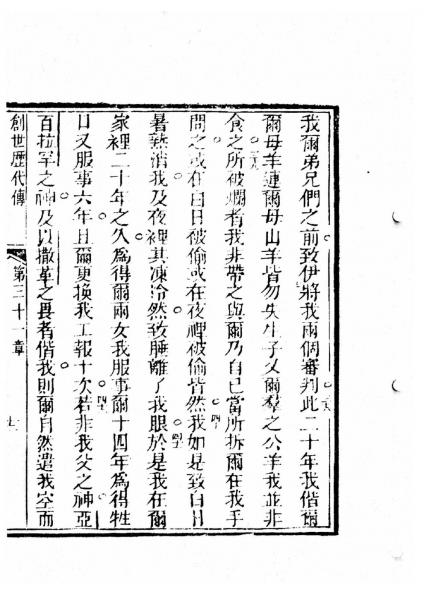 我爾弟兄們之前致伊將我兩個審判此二十年我偕爾
爾母羊連爾母山羊皆勿失生子又爾羣之公羊我並非
食之所被爛者我非帶之與爾乃自己當所拆爾在我手
問之或在白日被偷或在夜裡被偷皆然我如是致白日
暑熱消我及夜裡其凍冷然致睡離了我眼於是我在爾
家裡二十年之久為得爾兩女我服事爾十四年為得牲
口又服事六年且爾更換我工報十次若非我父之神亞
百拉罕之神及以撒革之畏者偕我則爾自然遣我空而
創世歷代傳 第三十一章